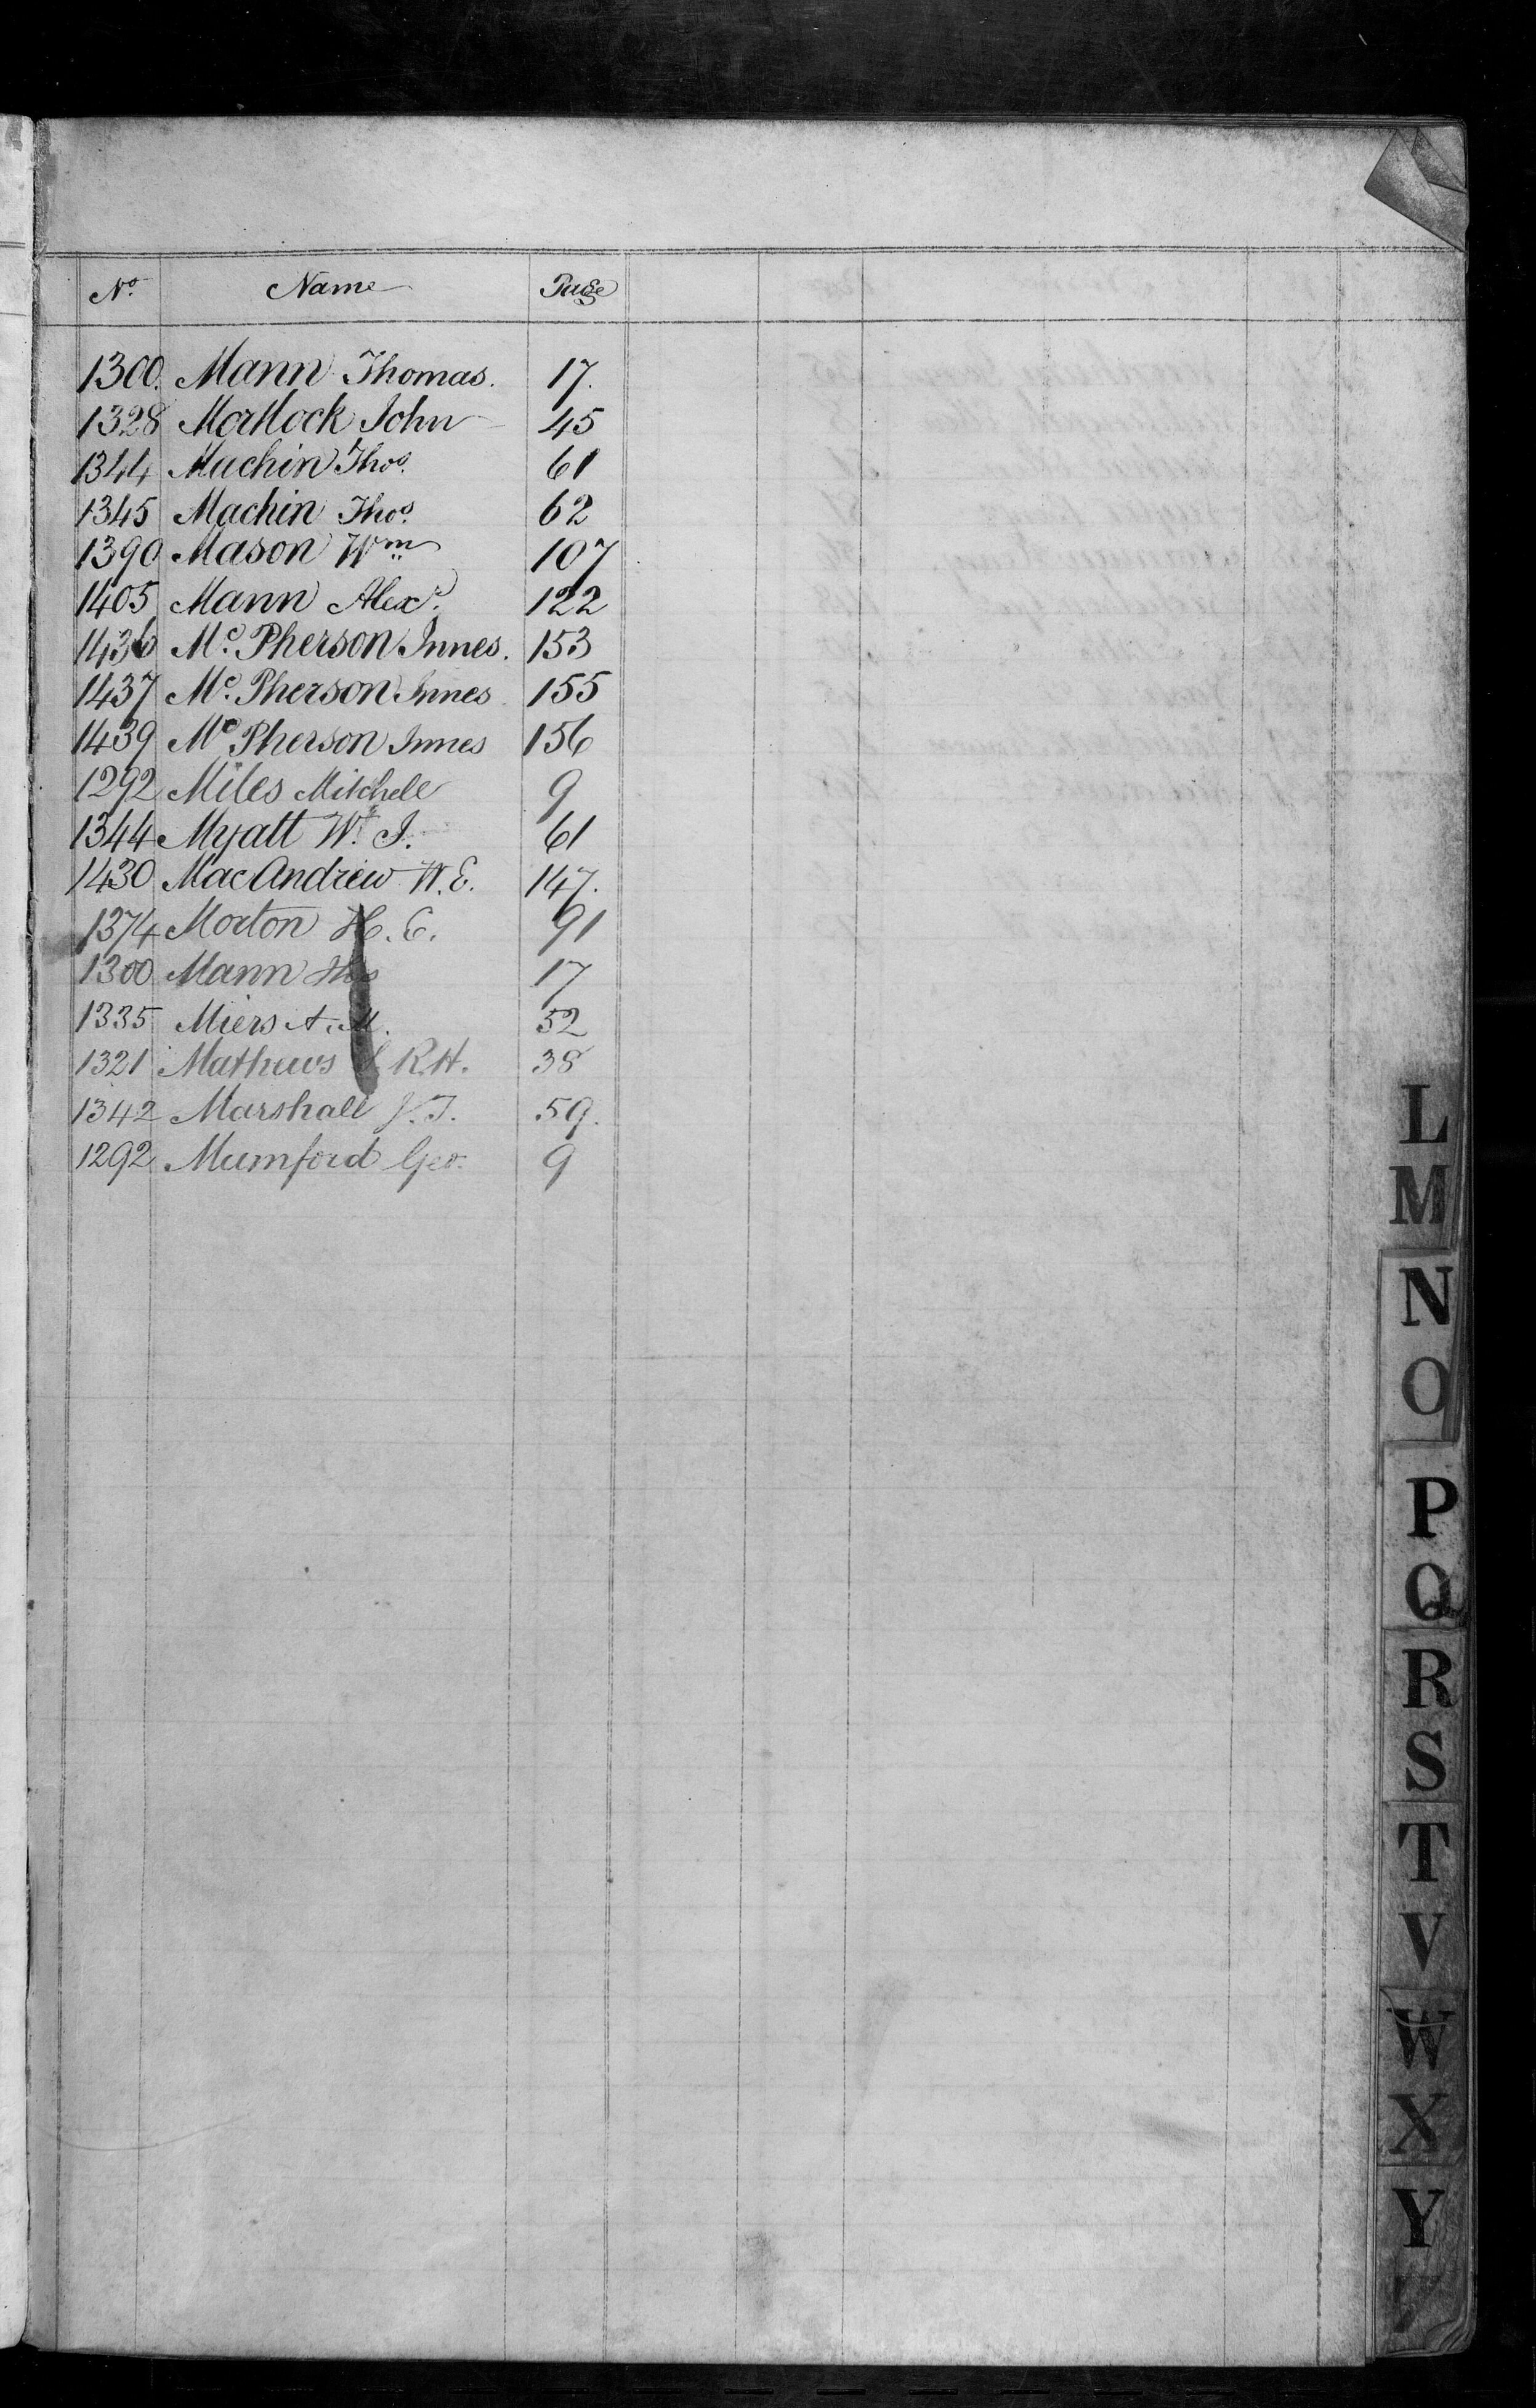 No. Name Page
1300. Mann Thomas. 17.
1328 Mortlock John 45
1344 Machin Thos. 61
1345 Machin Thos. 62
1390 Mason Wm 107
1405 Mann Alexr. 122
1436 Mc. Pherson Innes. 153
1437 Mc. Pherson Innes 155
1439 Mc Pherson Innes 156
1292 Miles Mitchell 9
1344 Myatt W. J. 61
1430 MacAndrew W. E. 147.
1374 Morton H. E. 91
1300 Mann Thos 17
1335 Miers A. M. 52
1321 Mathews R.H. 38
1342 Marshall J. T. 59.
1292 Mumford Geo. 9
L
M
N
O
P
Q
R
S
T
V
W
X
Y